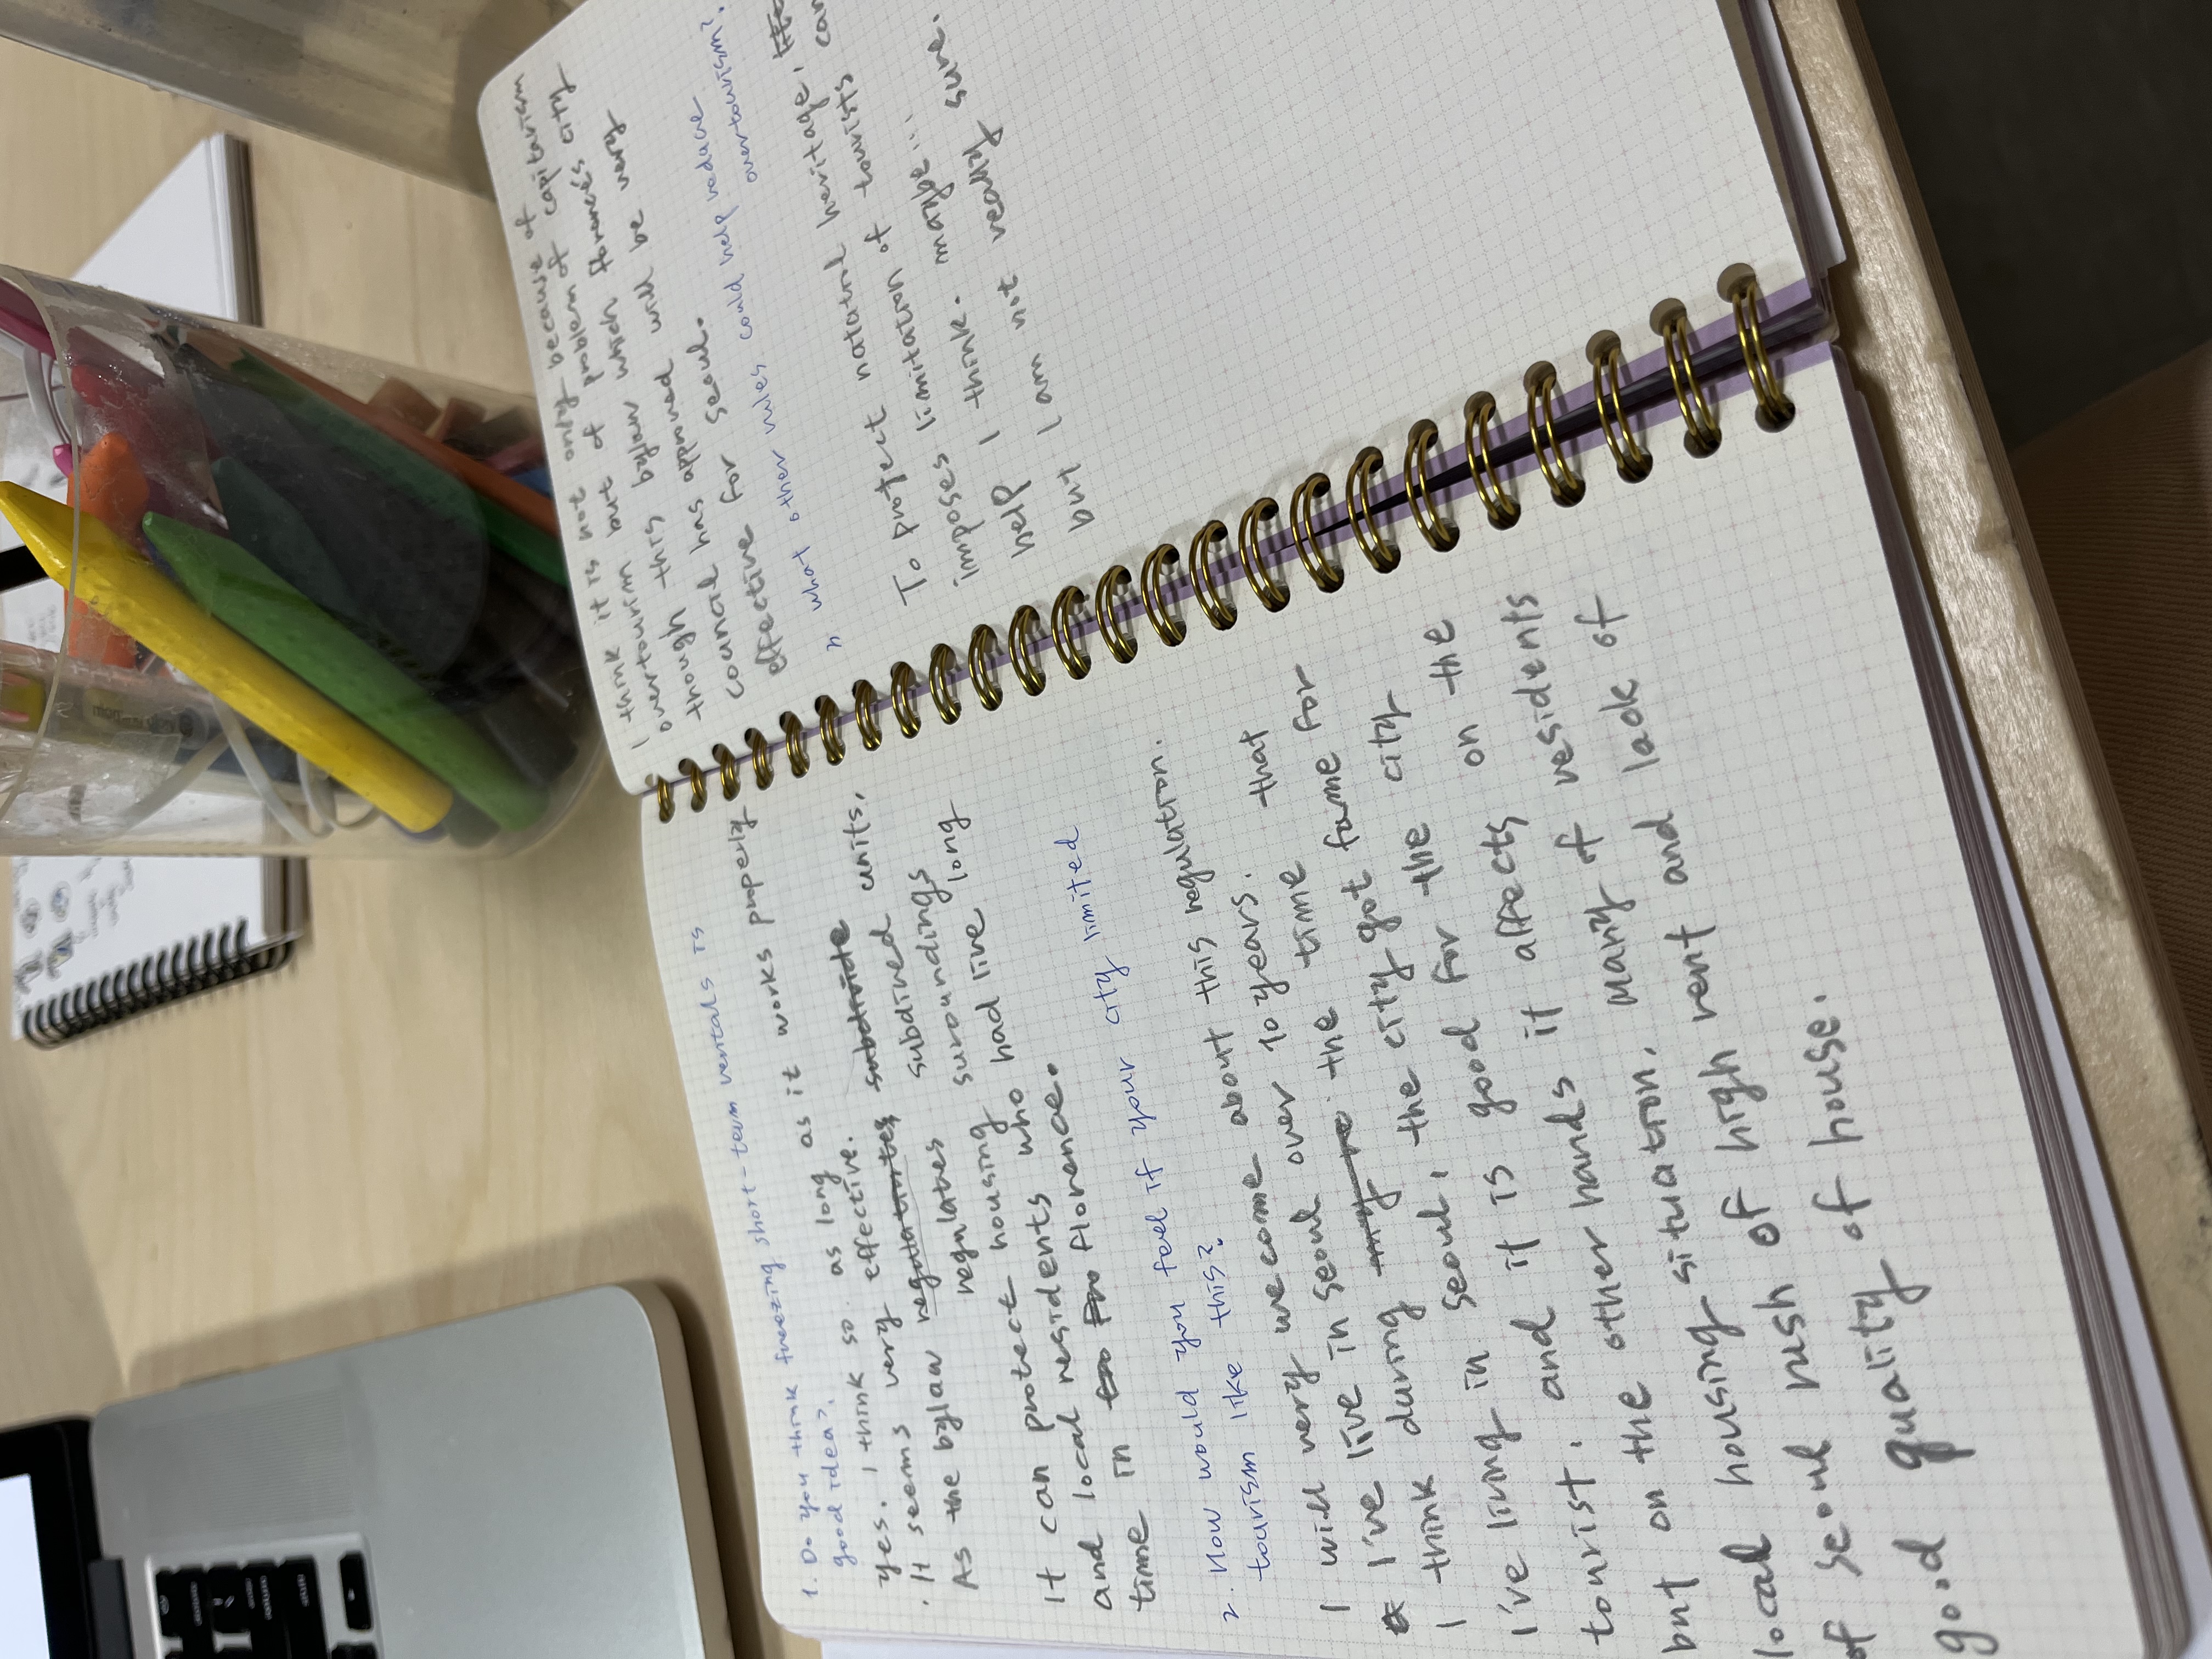 1. Do you think freezing short-term rentals is
good idea?
yes. I think so. as long as it works properly
. It seems very effective.
As the bylaw regulates subdived units,
regulates surroundings
It can protect housing
and local residents who had live long
time in florence.
2. How would you feel if your city limited
tourism like this?
I will very wecome about this regulatron.
I've live in seoul over 10 years. that
I think during the time
I've living in seoul, the city got fame for
tourist. and it is good for the city
but on the other hands it affects on the
local housing situatron. Many of residents
of seoul rush of high rent and lack of
good quality of house.
I think it is not only because of
overtourism but of problem of capitarism
though this bylaw which florence's city
council has approved will be very
effective for seoul.
what other rules could help reduce
overtourism?
To protect natatul heritage,
imposes limitatron of tourists can
help I think. maybe...
but I am not really sure.